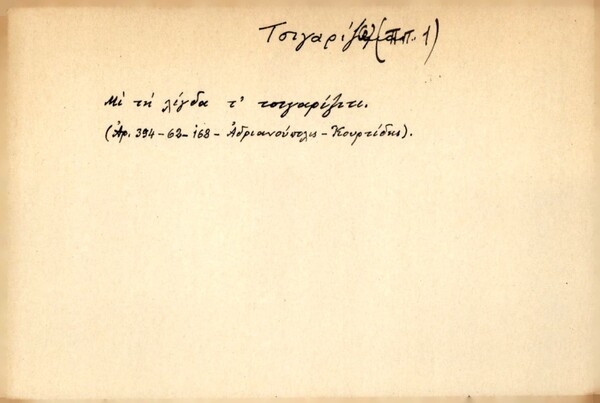 Τσιγαρίζω (ΠΠ. 1)
Μὲ τὴ λίγδα τ' τσιγαρίζετι.
(Ἀρ. 394-63-168 - Ἀδριανούπολις - Κουρτίδης).